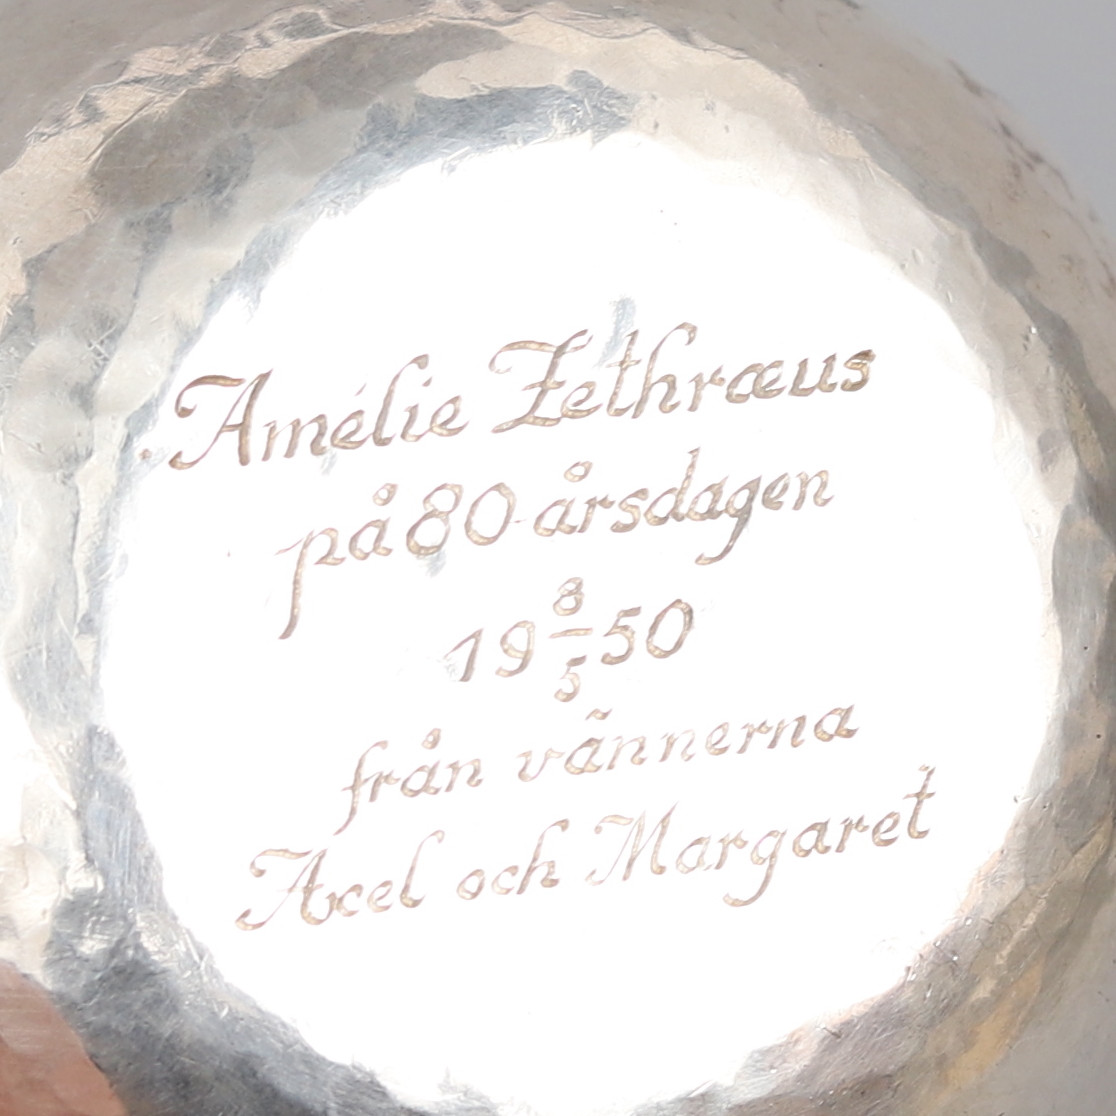 Amélie Zethræus
på 80-årsdagen
19 8/5 50
från vännerna
Axel och Margaret